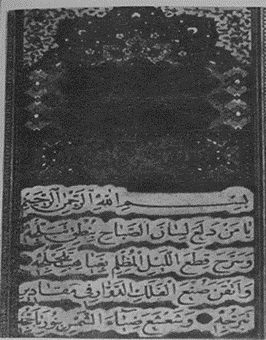 بسم الله الرحمن الرحيم
يا من دلع لسان الصباح بنطق تبلجه
وسرح قطع الليل المظلم بغياهب تلجلجه
واتقن صنع الفلك الدوار في مقادير
تبرجه وشعشع ضياء الشمس بنور تاججه